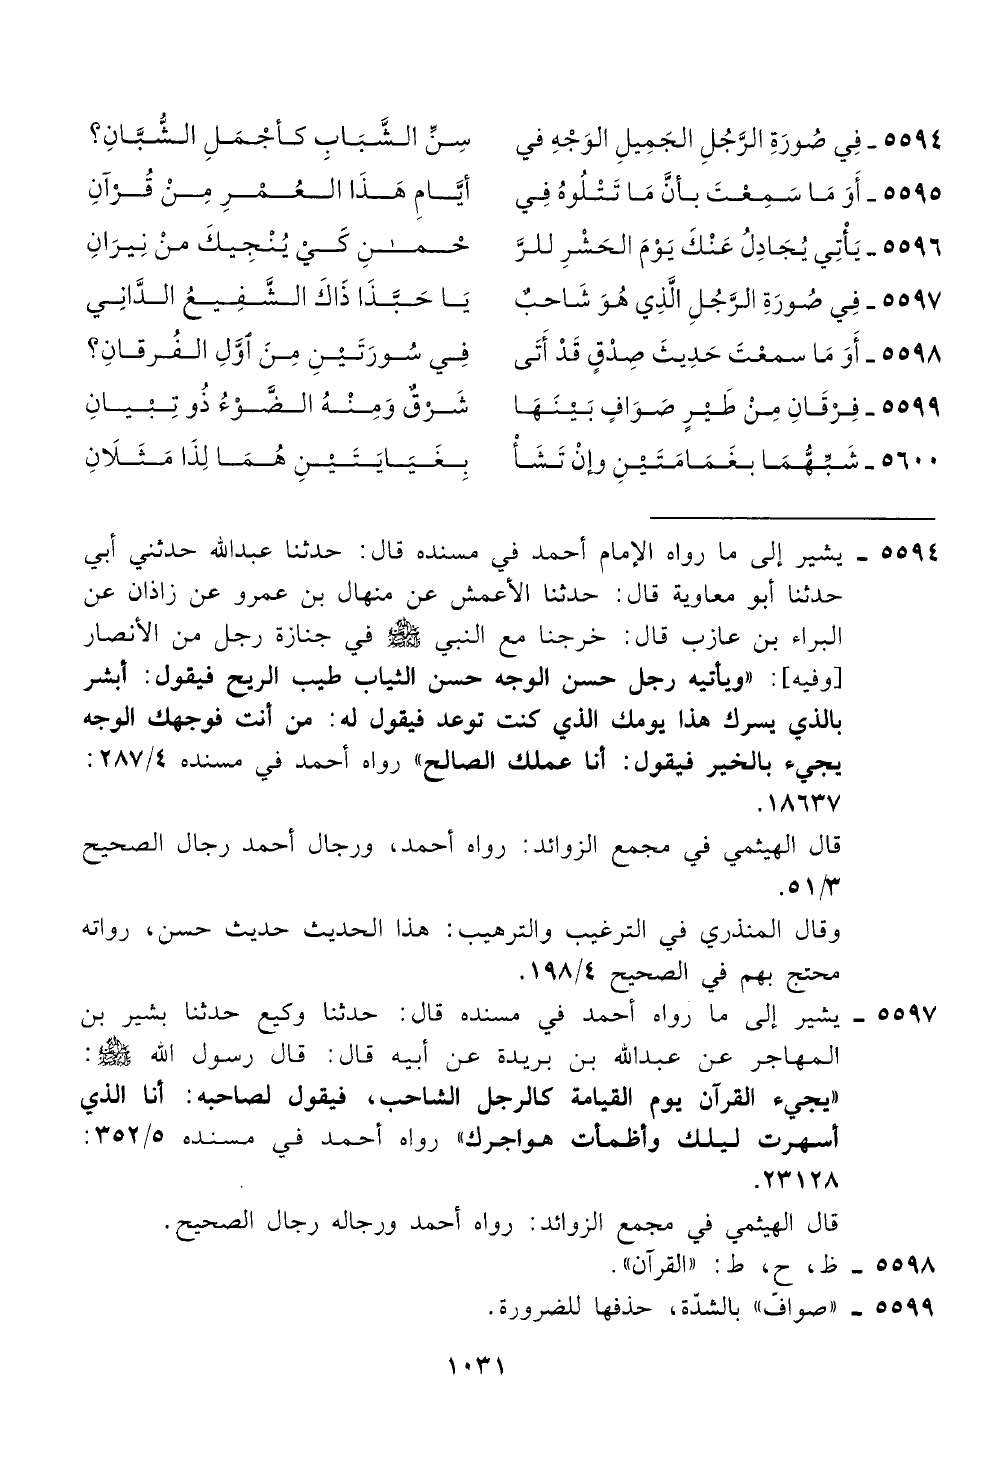 ٥٥٩٤ ـ فِي صُورَةِ الرَّجُلِ الجَمِيلِ الوَجْهِ فِي سِنِّ الشَّبَابِ كَأَجْمَلِ الشُّبَّانِ؟
٥٥٩٥ ـ أَوَ مَا سَمِعْتَ بِأَنَّ مَا تَتْلُوهُ فِي أَيَّامِ هَذَا العُمْرِ مِنْ قُرْآنِ
٥٥٩٦ ـ يَأْتِي يُجَادِلُ عَنْكَ يَوْمَ الحَشْرِ لِلرَّ حْمنِ كَيْ يُنْجِيكَ مِنْ نِيرَانِ
٥٥٩٧ ـ فِي صُورَةِ الرَّجُلِ الَّذِي هُوَ شَاحِبٌ يَا حَبَّذَا ذَاكَ الشَّفِيعُ الدَّانِي
٥٥٩٨ ـ أَوَ مَا سَمِعْتَ حَدِيثَ صِدْقٍ قَدْ أَتَى فِي سُورَتَيْنِ مِنَ أوَّلِ الفُرقَانِ؟
٥٥٩٩ ـ فِرْقَانِ مِنْ طَيْرٍ صَوَافٍ بَيْنَهَا شَرْقٌ وَمِنْهُ الضَّوْءُ ذُو تِبْيَانِ
٥٦٠٠ ـ شَبِّهْهُمَا بِغَمَامَتَيْنِ وإنْ تَشَأْ بِغَيَايَتَيْنِ هُمَا لِذَا مَثَلَانِ
٥٥٩٤ ـ يشير إلى ما رواه الإمام أحمد في مسنده قال: حدثنا عبدالله حدثني أبي
حدثنا أبو معاوية قال: حدثنا الأعمش عن منهال بن عمرو عن زاذان عن
البراء بن عازب قال: خرجنا مع النبي ﷺ في جنازة رجل من الأنصار
[وفيه]: «ويأتيه رجل حسن الوجه حسن الثياب طيب الريح فيقول: أبشر
بالذي يسرك هذا يومك الذي كنت توعد فيقول له: من أنت فوجهك الوجه
يجيء بالخير فيقول: أنا عملك الصالح» رواه أحمد في مسنده ٢٨٧/٤:
١٨٦٣٧.
قال الهيثمي في مجمع الزوائد: رواه أحمد، ورجال أحمد رجال الصحيح
٥١/٣.
وقال المنذري في الترغيب والترهيب: هذا الحديث حديث حسن، رواته
محتج بهم في الصحيح ١٩٨/٤.
٥٥٩٧ ـ يشير إلى ما رواه أحمد في مسنده قال: حدثنا وكيع حدثنا بشير بن
المهاجر عن عبدالله بن بريدة عن أبيه قال: قال رسول الله ﷺ:
«يجيء القرآن يوم القيامة كالرجل الشاحب، فيقول لصاحبه: أنا الذي
أسهرت ليلك وأظمأت هواجرك» رواه أحمد في مسنده ٣٥٢/٥:
٢٣١٢٨.
قال الهيثمي في مجمع الزوائد: رواه أحمد ورجاله رجال الصحيح.
٥٥٩٨ ـ ظ، ح، ط: «القرآن».
٥٥٩٩ ـ «صوافّ» بالشدّة، حذفها للضرورة.
١٠٣١